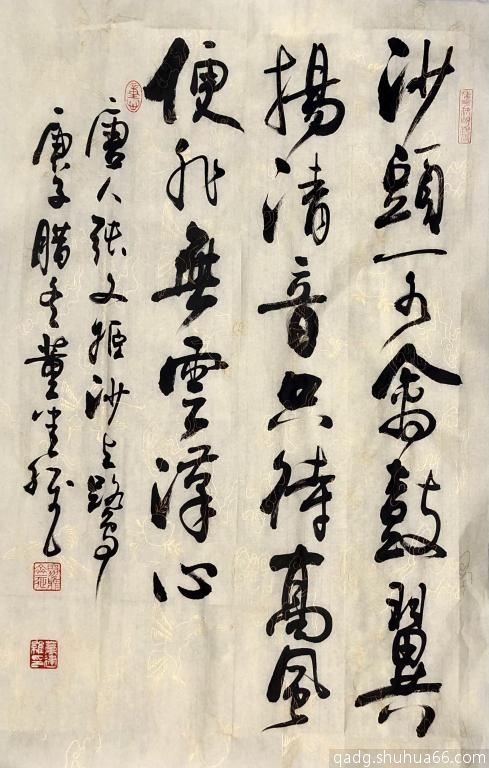 沙頭一水禽鼓翼
揚清音只待高風
便非無雲漢心
唐人張文姬沙上鷺
庚子腊冬董
qadg.shuhua66.com